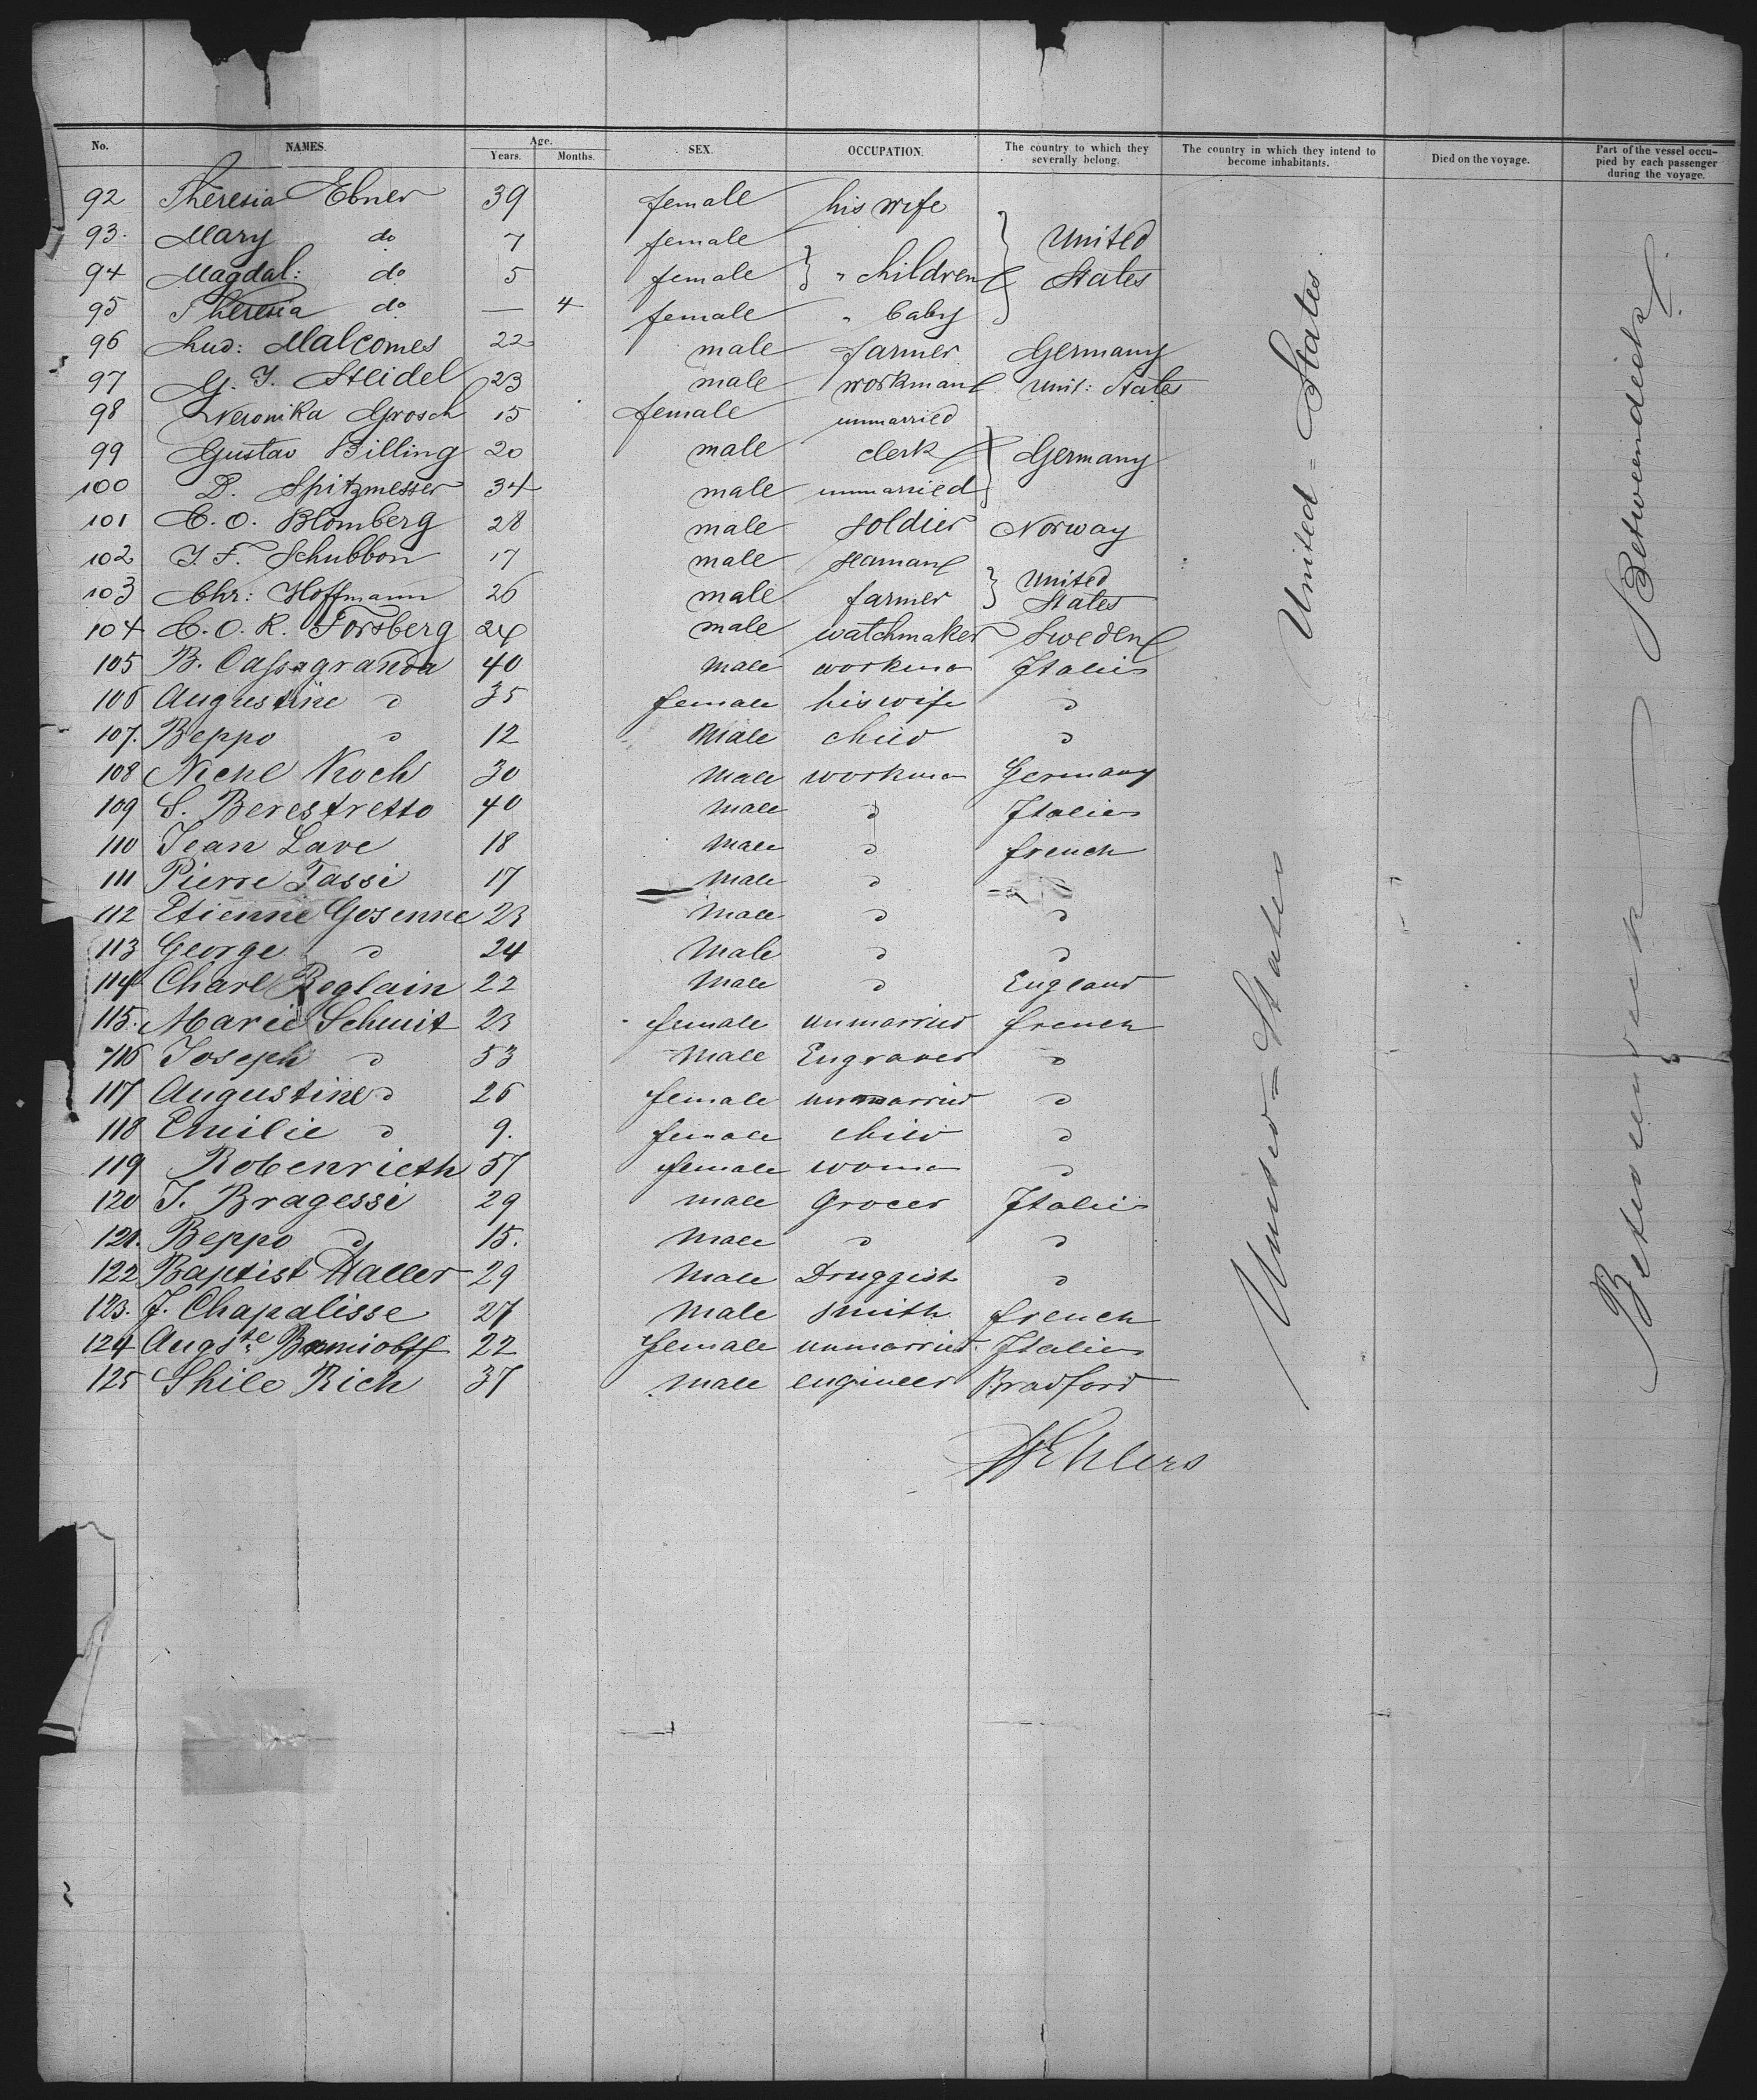 No. NAMES. Age. Years. Months. SEX. OCCUPATION. The country to which they severally belong. The country in which they intend to become inhabitants. Died on the voyage. Part of the vessel occupied by each passenger during the voyage.
92 Theresia Ebner 39 female his wife
93. Mary do 7 female } United
94 Magdal: do 5 female } " children States
95 Theresia do — 4 female " baby
96 Lud: Malcomes 22 male farmer Germany
97 G. J. Steidel 23 male workman Unit: States
98 Veronika Grosch 15 female unmarried
99 Gustav Billing 20 male clerk } Germany
100 D. Spitzmesser 34 male unmarried
101 C. O. Blomberg 28 male soldier Norway
102 J. F. Schubbon 17 male seaman
103 Chr: Hoffmann 26 male farmer } United States
104 C. O. R. Forsberg 24 male watchmaker Sweden
105 B. Cassagranda 40 Male workman Italien
106 Augustine d 35 female his wife d
107. Beppo d 12 Male child d
108 Koch 30 Male workman Germany
109 S. Berestretto 40 Male d Italien
110 Jean Lave 18 Male d french
111 Pierre Tassi 17 Male d
112 Etienne Gosenne 23 Male d d
113 George d 24 Male d d
114 Charl Reglain 22 Male d England
115. Marie Schmit 23 female unmarried french
116 Joseph d 53 Male Engraver d
117 Augustine d 26 female unmarried d
118 Emilie d 9. female child d
119 Robenrieth 57 female woman d
120 J. Bragessi 29 male Grocer Italien
121. Beppo d 15. Male d d
122 Baptist Haller 29 Male Druggist d
123. J. Chapalisse 27 Male Smith french
124 Augste 22 female unmarried. Italien
125 Rich 37 male engineer Bradford
United = States.
United = States
Betweendeck.
Betweendeck
Ehlers